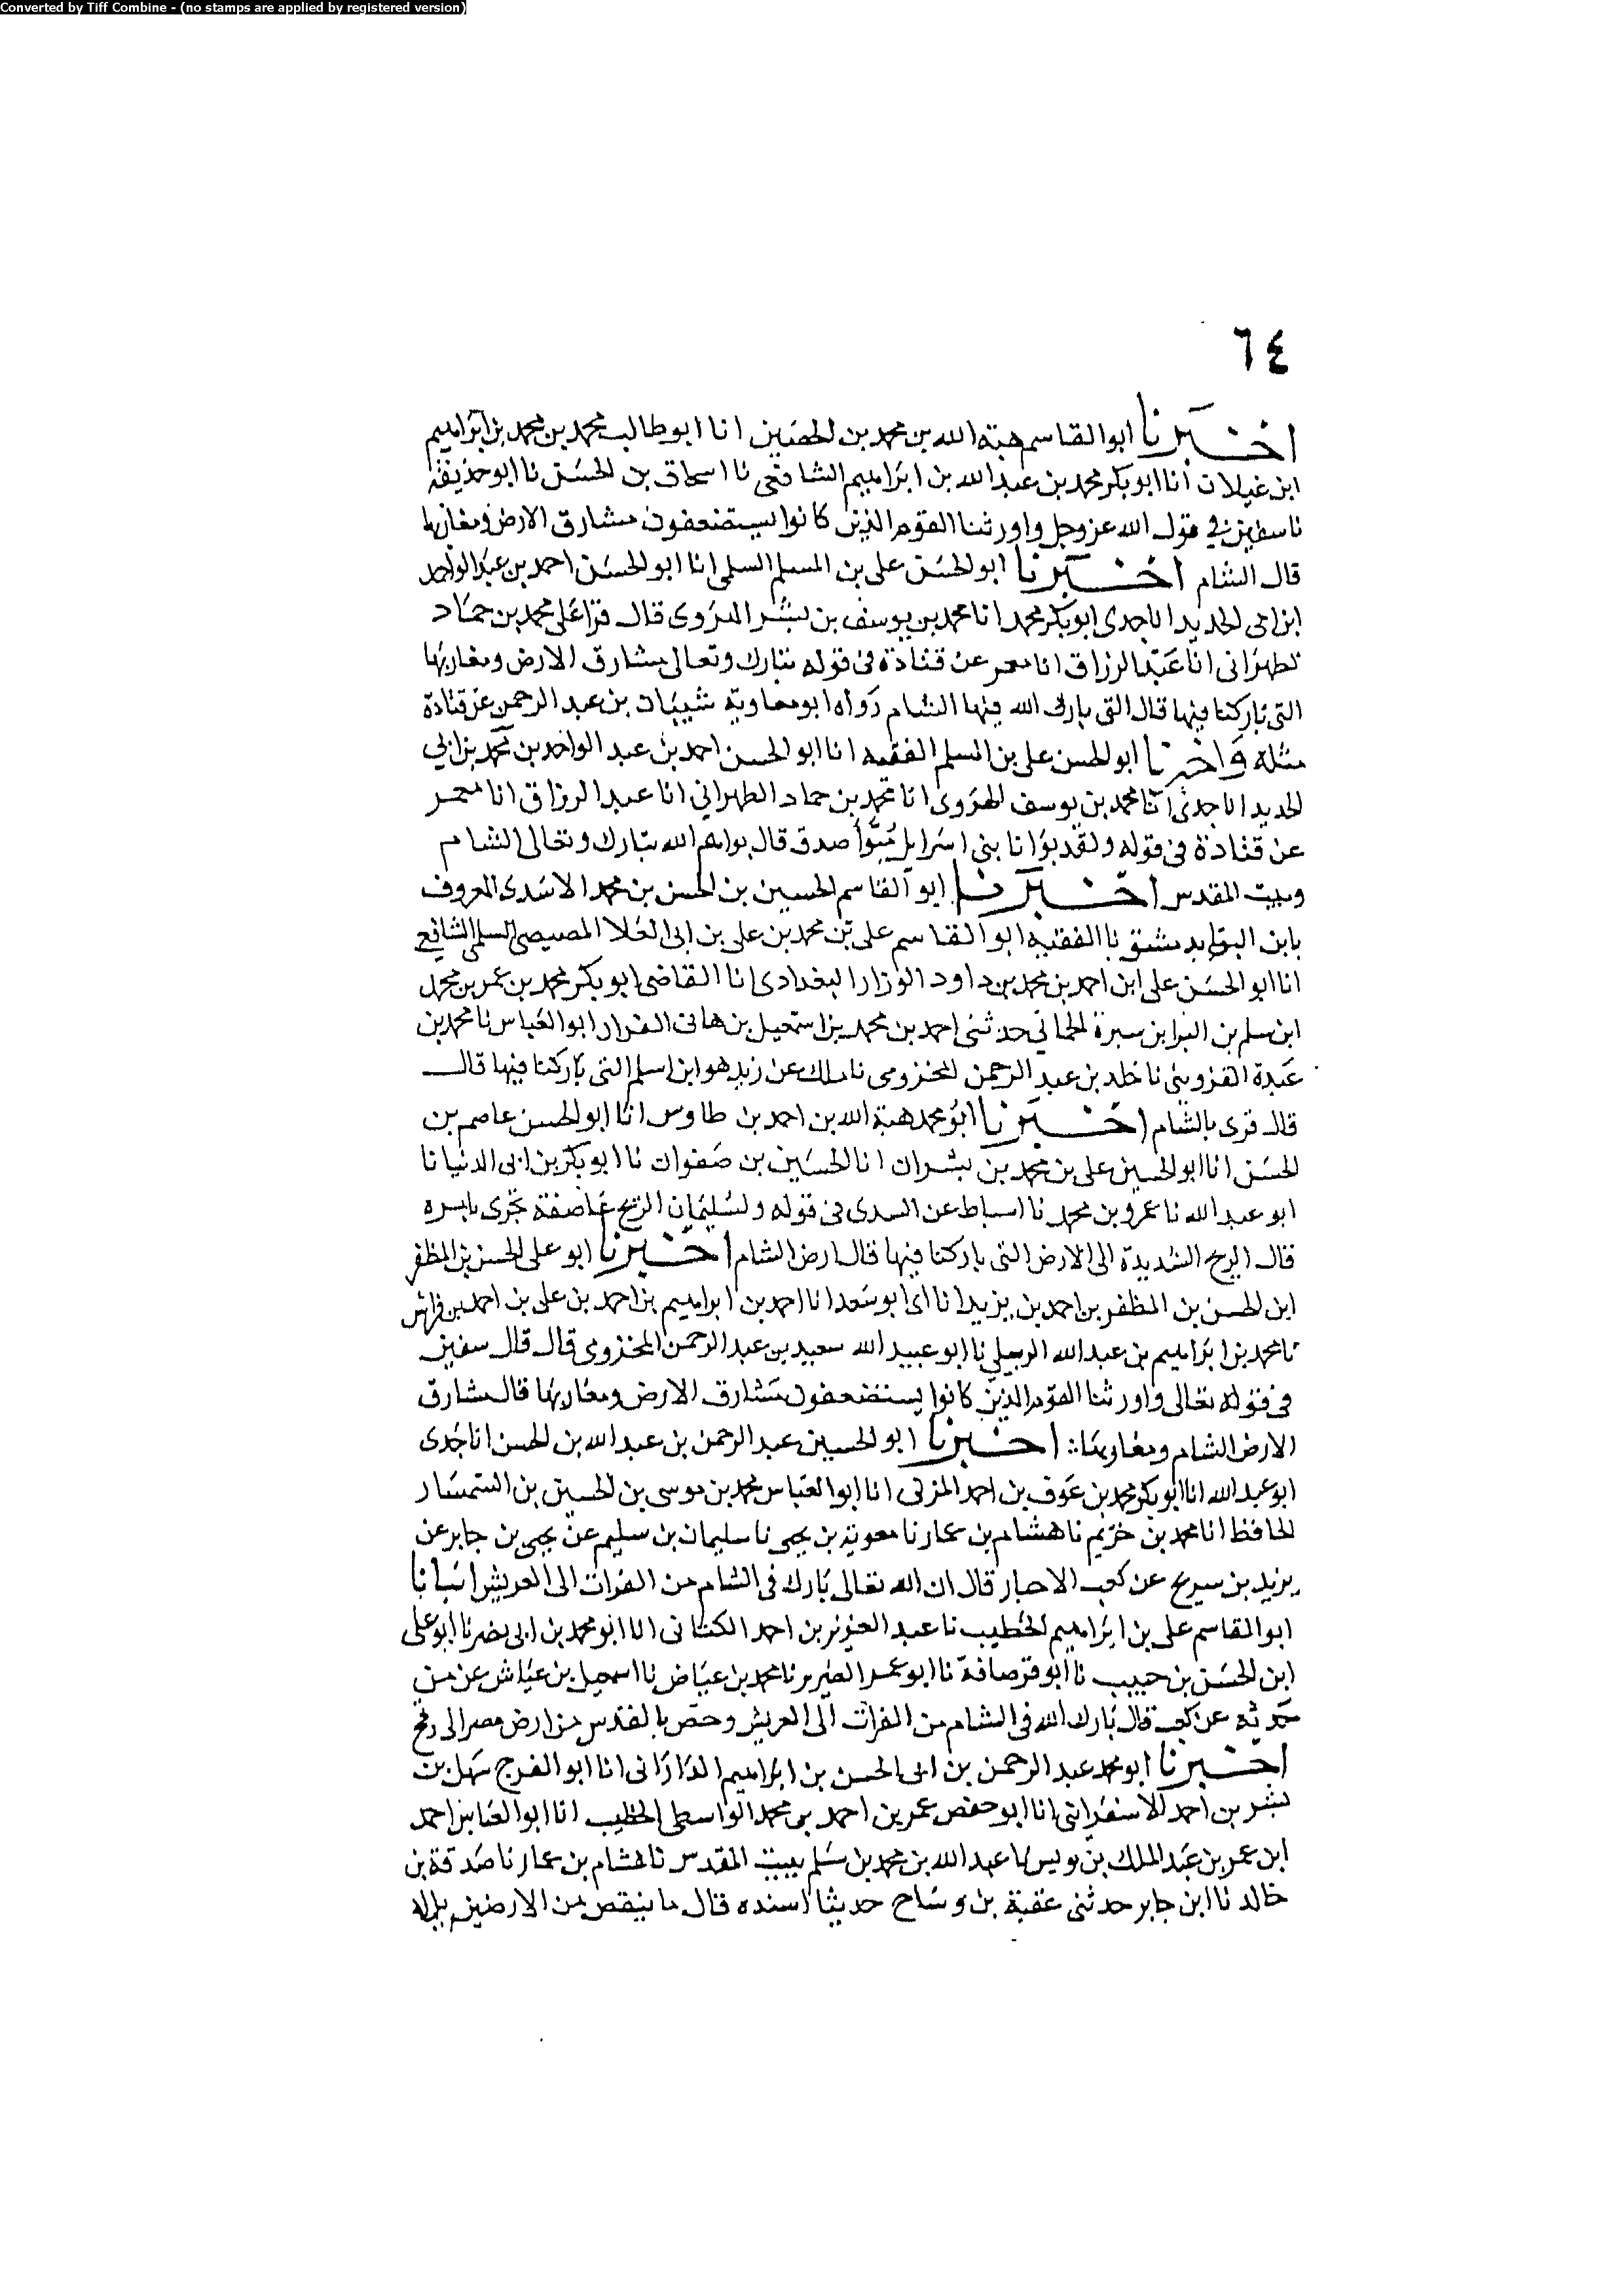 Converted by Tiff Combine - (no stamps are applied by registered version)
٦٤
اخبرنا ابو القاسم هبة الله بن محمد بن الحصين انا ابو طالب محمد بن محمد بن ابراهيم
ابن غيلان أنا ابو بكر محمد بن عبد الله بن ابراهيم الشافعي نا اسحاق بن الحسن نا ابو حذيفة
نا سفين في قول الله عز وجل واورثنا القوم الذين كانوا يستضعفون مشارق الارض ومغاربها
قال الشام اخبرنا ابو الحسن علي بن المسلم السلمي انا ابو الحسن احمد بن عبد الواحد
ابن ابي الحديد انا جدي ابو بكر محمد انا محمد بن يوسف بن بشر الهروي قال قرا على محمد بن حماد
لطهراني انا عبد الرزاق انا معمر عن قتادة في قوله تبارك وتعالى مشارق الارض ومغاربها
التي باركنا فيها قال التي بارك الله فيها الشام رواه ابو معاوية شيبان بن عبد الرحمن عن قتادة
مثله واخبرنا ابو الحسن علي بن المسلم الفقيه انا ابو الحسن احمد بن عبد الواحد بن محمد بن ابي
الحديد انا جدي انا محمد بن يوسف الهروي انا محمد بن حماد الطهراني انا عبد الرزاق انا معمر
عن قتادة في قوله ولقد بوانا بني اسرايل مبوأ صدق قال بواهم الله تبارك وتعالى الشام
وبيت المقدس اخبرنا ابو القاسم الحسين بن الحسن بن محمد الاسدي المعروف
بابن البن بدمشق نا الفقيه ابو القاسم علي بن محمد بن علي بن ابي العلا المصيصي السلمي الشافعي
انا ابو الحسن علي ابن احمد بن محمد بن داود الرزار البغدادي انا القاضي ابو بكر محمد بن عمر بن محمد
ابن سلم بن البرا بن سبرة الجماني حدثني احمد بن محمد بن اسمعيل بن هاني القرار ابو العباس نا محمد بن
عبدة القزويني نا خلد بن عبد الرحمن المخزومي نا ملك عن زيد هو ابن اسلم التي باركنا فيها قال
قال قرى بالشام اخبرنا ابو محمد هبة الله بن احمد بن طاوس انا ابو الحسن عاصم بن
الحسن انا ابو الحسين علي بن محمد بن بشران انا الحسين بن صفوان نا ابو بكر بن ابي الدنيا نا
ابو عبد الله نا عمرو بن محمد نا اسباط عن السدي في قوله ولسليمان الريح عاصفة تجري بامره
قال الريح الشديدة الى الارض التي باركنا فيها قال ارض الشام اخبرنا ابو علي الحسن بن المظفر
ابن الحسن بن المظفر بن احمد بن يزيد انا ابو سعد انا احمد بن ابراهيم بن احمد بن علي بن احمد بن فراس
نا محمد بن ابراهيم بن عبد الله الربيلي نا ابو عبيد الله سعيد بن عبد الرحمن المخزومي قال قال سفين
في قوله تعالى واورثنا القوم الذين كانوا يستضعفون مشارق الارض ومغاربها قال مشارق
الارض الشام ومغاربها: اخبرنا ابو الحسين عبد الرحمن بن عبد الله بن الحسن انا جدي
ابو عبد الله انا ابو بكر محمد بن عوف بن احمد المزني انا ابو العباس محمد بن موسى بن الحسين بن السمسار
الحافظ انا محمد بن خريم نا هشام بن عمار نا معوية بن يحيى نا سليمان بن سليم عن يحيى بن جابر عن
يزيد بن سريح عن كعب الاحبار قال ان الله تعالى بارك في الشام من الفرات الى العريش انبانا
ابو القاسم علي بن ابراهيم الخطيب نا عبد العزيز بن احمد الكتاني انا ابو محمد بن ابي نصر نا ابو علي
ابن الحسن بن حبيب نا ابو قرصافة نا ابو عمر الضرير نا محمد بن عياض نا اسمعيل بن عياش عن من
حدثه عن كعب قال بارك الله في الشام من الفرات الى العريش وخص بالقدس من ارض مصر الى رفح
اخبرنا ابو محمد عبد الرحمن بن ابي الحسن بن ابراهيم الداراني انا ابو الفرج سهل بن
بشر بن احمد الاسفراني انا ابو حفص عمر بن احمد بن محمد الواسطي الخطيب انا ابو العباس احمد
ابن عمر بن عبد الملك بن نا عبد الله بن محمد بن سلم ببيت المقدس نا هشام بن عمار نا صدقة بن
خالد نا ابن جابر حدثني عقبة بن وساح حديثا اسنده قال ما ينقص من الارضين